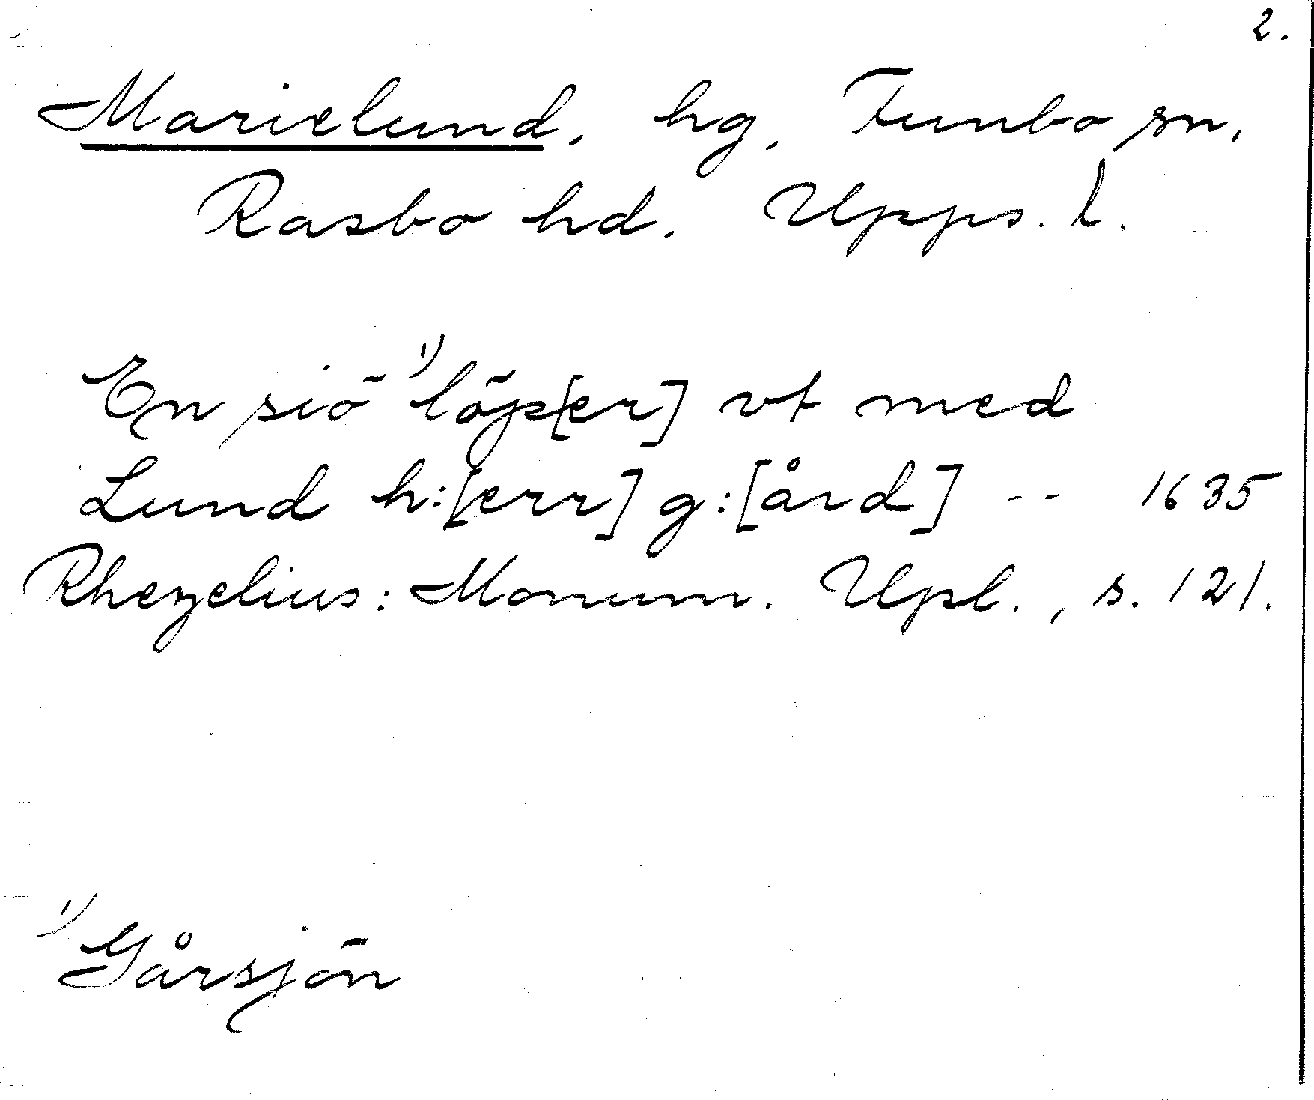 2.
Marielund, hg, Funbo sn,
Rasbo hd. Upps. l.
En siö 1) löp[er] vt med
Lund h:[err] g:[ård] -- 1635
Rhezelius: Monum. Upl., s. 121.
1) Gårsjön